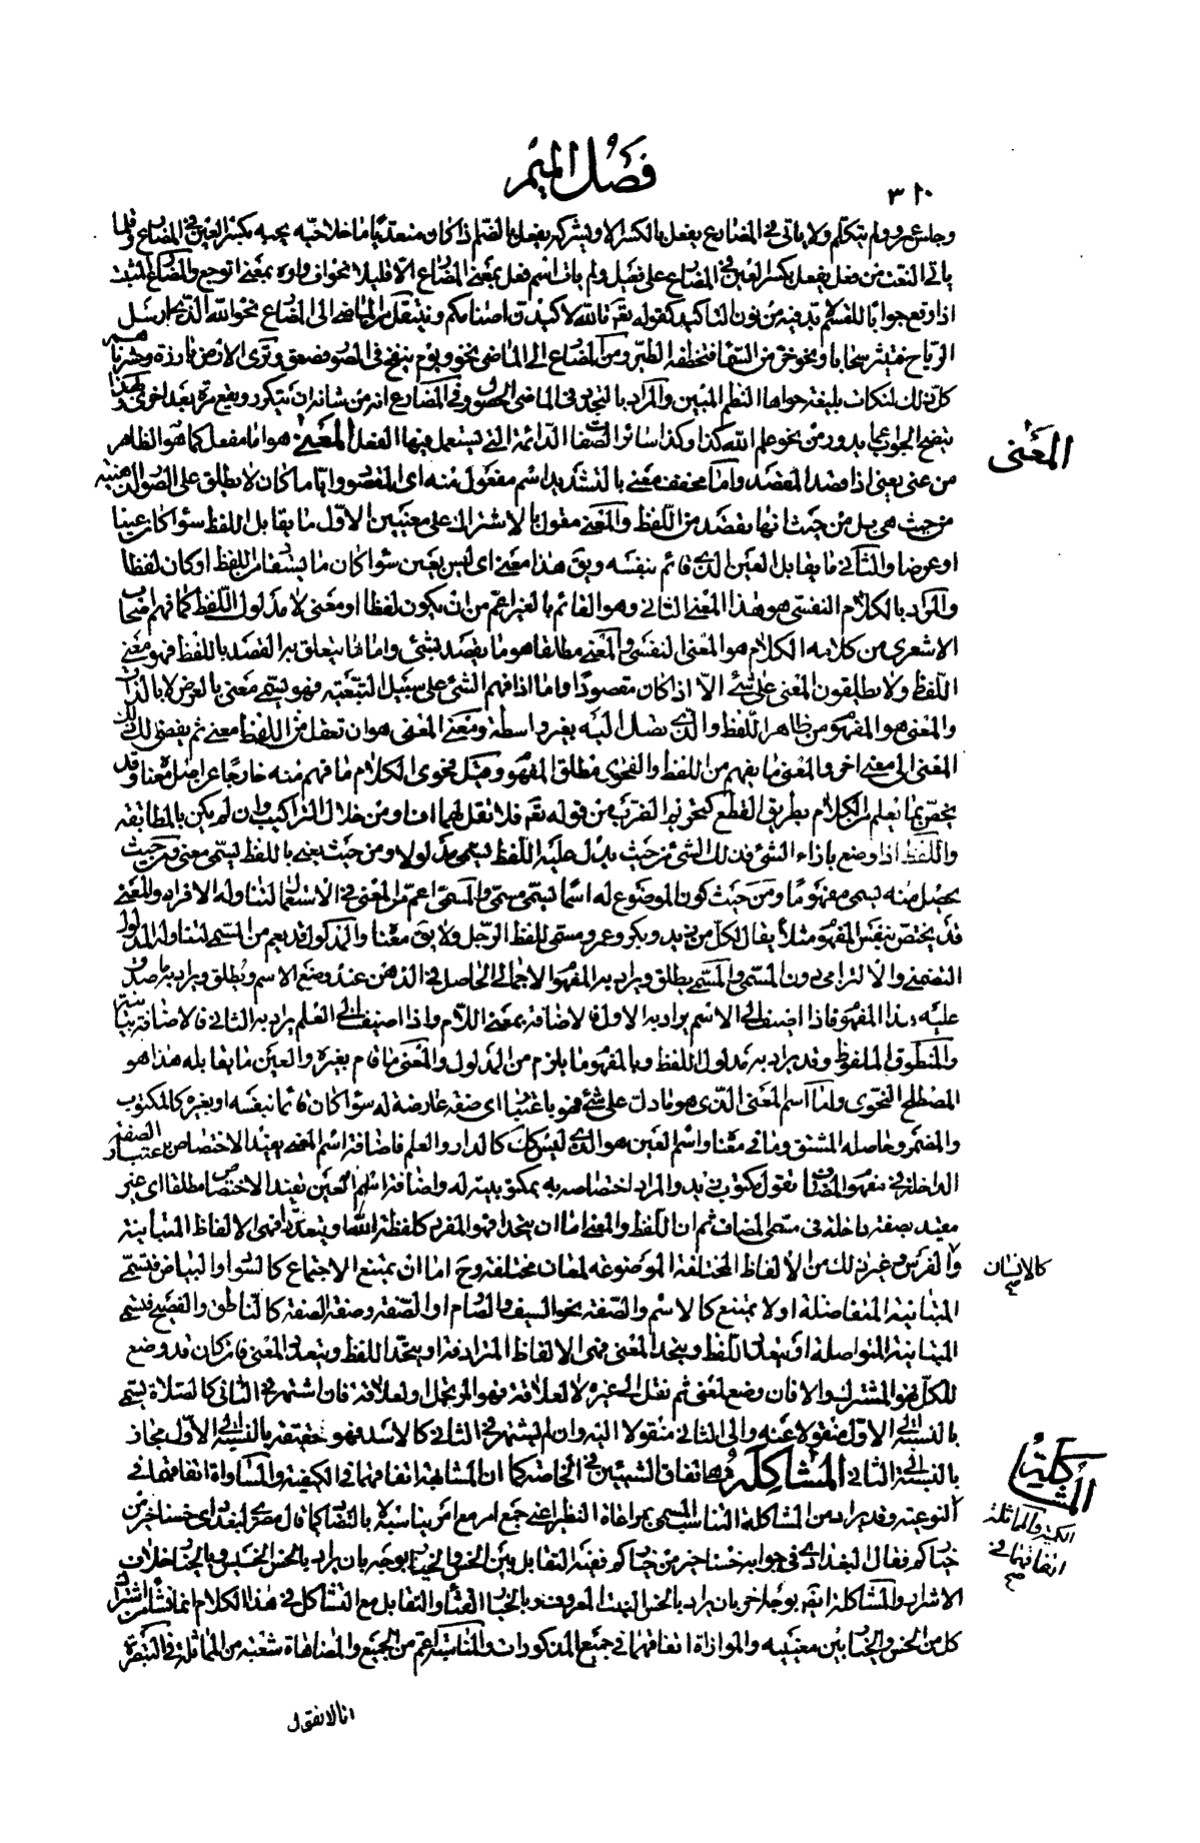 فصل الميم
٣١٠
وجلس عمرو ولم يتكلم ولا يأتى فى المضارع يفعل بالكسر الا ويشركه يفعل بالضم اذا كان متعديا ما خلا حبه يحبه بكسر العين فى المضارع وقلما
يأتى النعت من فعل يفعل بكسر العين فى المضارع على فعيل ولم يأت اسم فعل بمعنى المضارع الا قليلا نحو اف واوه بمعنى اتوجع والمضارع المثبت
اذا وقع جوابا للقسم لا بد فيه من نون التاكيد كقوله تعه تالله لاكيدن اصنامكم وينتقل من الماضى الى المضارع نحو الله الذى ارسل
الرياح فتثير سحابا ونحو خر من السماء فتخطفه الطير ومن المضارع الى الماضى نحو ويوم ينفخ فى الصور فصعق وترى الارض بارزة وحشرناهم
كل ذلك لنكات بليغة حواها النظم المبين والمراد بالتجدد فى الماضى الحصول وفى المضارع انه من شانه ان يتكرر ويقع مرة بعد اخرى وبهذا
يتضح الجواب عما يدور من نحو علم الله كذا وكذا سائر الصفات الدائمة التى يستعمل فيها الفعل المعنى هو اما مفعل كما هو الظاهر
المعنى
من عنى يعنى اذا قصد المقصد واما مخفف معنى بالتشديد اسم مفعول منه اى المقصود وايا ما كان لا يطلق على الصور الذهنية
من حيث هى بل من حيث انها يقصد من اللفظ والمعنى مقول بالاشتراك على معنيين الاول ما يقابل اللفظ سواء كان عينا
او عرضا والثانى ما يقابل العين الذى قائم بنفسه ويق هذا معنى اى ليس بعين سواء كان ما يستفاد من اللفظ او كان لفظا
والمراد بالكلام النفسى هو هذا المعنى الثانى وهو القائم بالغير اعم من ان يكون لفظا او معنى لا مدلول اللفظ كما فهم اصحاب
الاشعرى من كلامه الكلام هو المعنى النفسى والمعنى مطلقا هو ما يقصد بشئ واما ما يتعلق به القصد باللفظ فهو معنى
اللفظ ولا يطلقون المعنى على شئ الا اذا كان مقصودا واما اذا فهم الشئ على سبيل التبعية فهو يسمى معنى بالعرض لا بالذات
والمعنى هو المفهوم من ظاهر اللفظ والذى تصل اليه بغير واسطة ومعنى المعنى هو ان تعقل من اللفظ معنى ثم يفضى لك ذلك
المعنى الى معنى اخر والمعنى ما يفهم من اللفظ والفحوى مطلق المفهوم وقيل فحوى الكلام ما فهم منه خارجا عن اصل معناه وقد
يخص بما يعلم من الكلام بطريق القطع كتحريم الضرب من قوله تعه فلا تقل لهما اف او من خلال التراكيب وان لم يكن بالمطابقة
واللفظ اذا وضع بازاء الشئ فذلك الشئ من حيث يدل عليه اللفظ يسمى مدلولا ومن حيث يعنى باللفظ يسمى معنى ومن حيث
يحصل منه يسمى مفهوما ومن حيث كون الموضوع له اسما يسمى مسمى والمسمى اعم من المعنى فى الاستعمال لتناوله الافراد والمعنى
قد يختص بنفس المفهوم مثلا يقال لكل من زيد وبكر وعمرو مسمى للفظ الرجل ولا يق معناه والمدلول قد يعم من المسمى لتناوله المدلول
التضمنى والالتزامى دون المسمى والمسمى يطلق ويراد به المفهوم الاجمالى الحاصل فى الذهن عند وضع الاسم ويطلق ويراد به ما صدق
عليه هذا المفهوم فاذا اضيف الى الاسم يراد به الاول فالاضافة بمعنى اللام واذا اضيف الى العلم يراد به الثانى فالاضافة بيانية
والمنطوق الملفوظ وقد يراد به مدلول اللفظ وبالمفهوم ما يلزم من المدلول والمعنى ما قام بغيره والعين ما يقابله هذا هو
المصطلح النحوى واما اسم المعنى الذى هو ما دل على شئ فهو باعتبار اى صفة عارضة له سواء كان قائما بنفسه او بغيره كالمكتوب
والمضمر وحاصله المشتق وما فى معناه واسم العين هو الذى ليس كك كالدار والعلم فاضافة اسم المعنى يفيد الاختصاص باعتبار الصفة
الداخلة فى مفهوم المضاف تقول مكتوب زيد والمراد اختصاصه به بمكتوبيته له واضافة اسم العين تفيد الاختصاص مطلقا اى غير
مقيد بصفة داخلة فى مسمى المضاف ثم ان اللفظ والمعنى اما ان يتحدا فهو المفرد كلفظة الله او يتعددا فهى الالفاظ المتباينة
كالانسان صح
والفرس وغير ذلك من الالفاظ المختلفة الموضوعة لمعان مختلفة وح اما ان يمتنع الاجتماع كالسواد والبياض فتسمى
المتباينة المتفاصلة او لا يمتنع كالاسم والصفة نحو السيف والصارم او الصفة وصفة الصفة كالناطق والفصيح فتسمى
المتباينة المتواصلة او يتعدد اللفظ ويتحد المعنى فهى الالفاظ المترادفة او يتحد اللفظ ويتعدد المعنى فان كان قد وضع
للكل فهو المشترك والا فان وضع لمعنى ثم نقل الى غيره لا لعلاقة فهو المرتجل او لعلاقة فان اشتهر فى الثانى كالصلاة يسمى
بالنسبة الى الاول منقولا عنه والى الثانى منقولا اليه وان لم يشتهر فى الثانى كالاسد فهو حقيقة بالنسبة الى الاول مجاز
بالنسبة الى الثانى المشاكلة هى اتفاق الشيئين فى الخاصة كما ان المشابهة اتفاقهما فى الكيفية والمساواة اتفاقهما فى
المشاكلة
الكمية والمماثلة
اتفاقهما فى
صح
النوعية وقد يراد من المشاكلة التناسب المسمى بمراعاة النظير اعنى جمع امر مع امر يناسبه لا بالتضاد كما قال مصرى لبغدادى خسنا خير من
خياركم فقال البغدادى فى جوابه خسنا خير من خياركم ففيه التقابل بين الخس والخيار بوجه بان يراد بالخس الخسيس وبالخيار خلاف
الاشرار والمشاكلة ايضا بوجه اخر بان يراد بالخس النبت المعروف وبالخيار القثاء والتقابل مع التشاكل فى هذا الكلام انما نشأ من اشتراك
كل من الخس والخيار بين معنييه والموازاة اتفاقهما فى جميع المذكورات والمناسبة اعم من الجميع والمضاهاة شعبة من المماثلة فى التبصرة
انا لا نقول